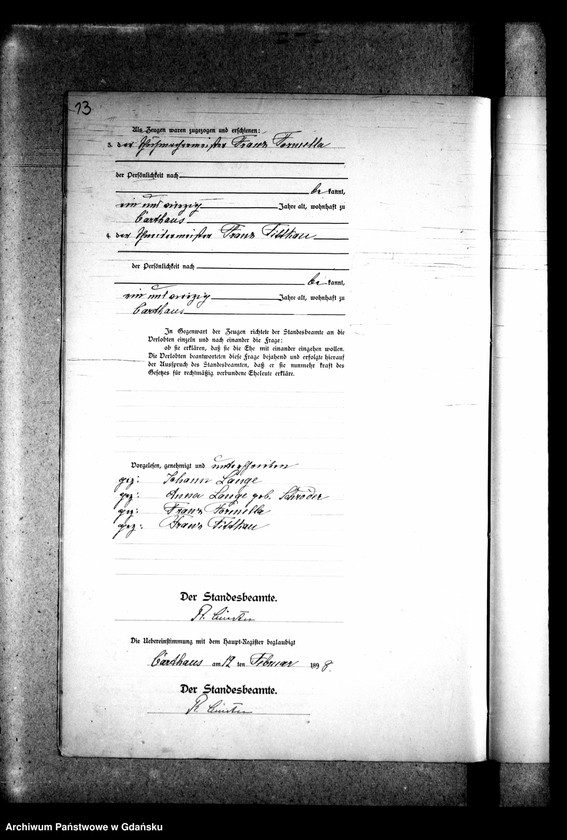 13
Als Zeugen waren zugezogen und erschienen:
3. der Franz Formella
der Persönlichkeit nach
be kannt,
ein und vierzig Jahre alt, wohnhaft zu
Carthaus
4. der Schneidermeister Franz
der Persönlichkeit nach
be kannt,
ein und vierzig Jahre alt, wohnhaft zu
Carthaus
In Gegenwart der Zeugen richtete der Standesbeamte an die
Verlobten einzeln und nach einander die Frage:
ob sie erklären, daß sie die Ehe mit einander eingehen wollen.
Die Verlobten beantworteten diese Frage bejahend und erfolgte hierauf
der Ausspruch des Standesbeamten, daß er sie nunmehr kraft des
Gesetzes für rechtmäßig verbundene Eheleute erkläre.
Vorgelesen, genehmigt und unterschrieben
gez: Johann Lange
gez: Anna Lange geb. Schröder
gez: Franz Formella
gez: Franz
Der Standesbeamte.
Die Uebereinstimmung mit dem Haupt-Register beglaubigt
Carthaus am 12 ten Februar 1898.
Der Standesbeamte.
Archiwum Państwowe w Gdańsku